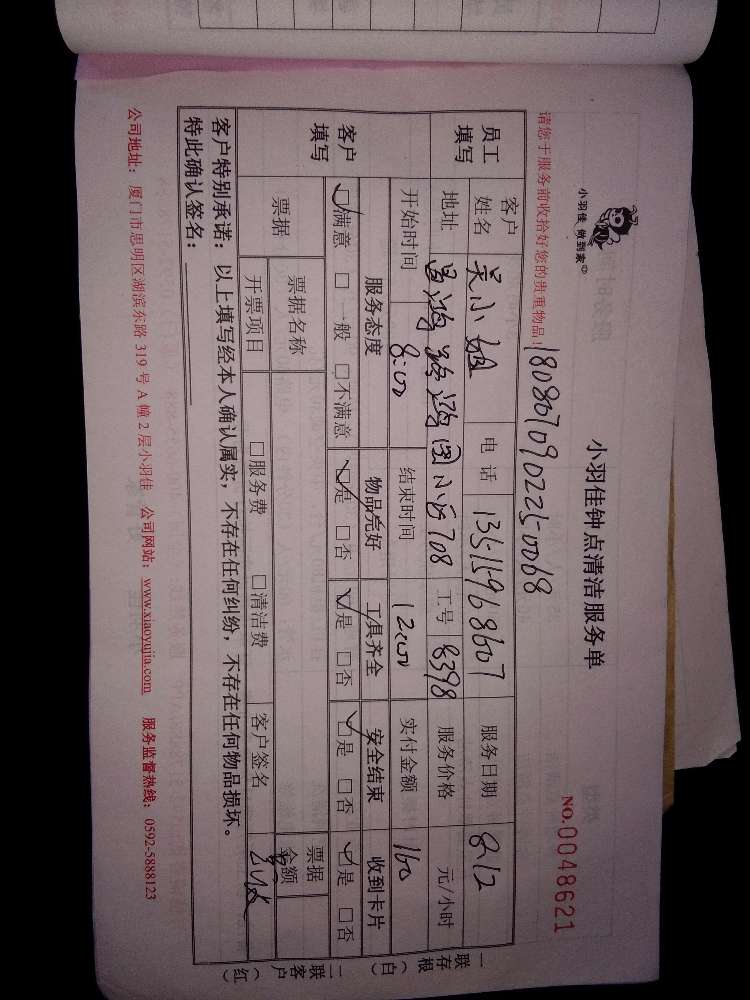 小羽佳 做到家
小羽佳钟点清洁服务单
NO.0048621
请您于服务前收拾好您的贵重物品!
180807090225-0068
员工填写
客户姓名 吴小姐 电话 13515968607 服务日期 8.12
地址 昌鸿路鸿图小区708 工号 8398 服务价格 元/小时
开始时间 8:00 结束时间 12:00 实付金额 160
客户填写
服务态度 物品完好 工具齐全 安全结束 收到卡片
☑满意 □一般 □不满意 ☑是 □否 ☑是 □否 ☑是 □否 ☑是 □否
票据 票据名称 票据金额
开票项目 □服务费 □清洁费 客户签名
客户特别承诺:以上填写经本人确认属实,不存在任何纠纷,不存在任何物品损坏。
特此确认签名:
一联存根(白)
二联客户(红)
公司地址:厦门市思明区湖滨东路319号A幢2层小羽佳 公司网站:www.xiaoyujia.com 服务监督热线:0592-5888123